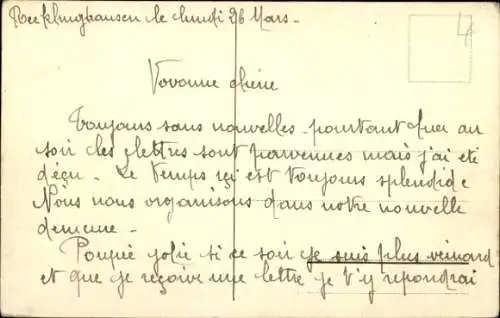 Recklinghausen le lundi 26 Mars -
Vovonne chérie
Toujours sans nouvelles - pourtant hier au
soir des lettres sont parvenues mais j'ai été
déçu - Le temps ici est toujours splendide
Nous nous organisons dans notre nouvelle
demeure -
Poupée jolie si ce soir je suis plus veinard
et que je reçoive une lettre je t'y répondrai